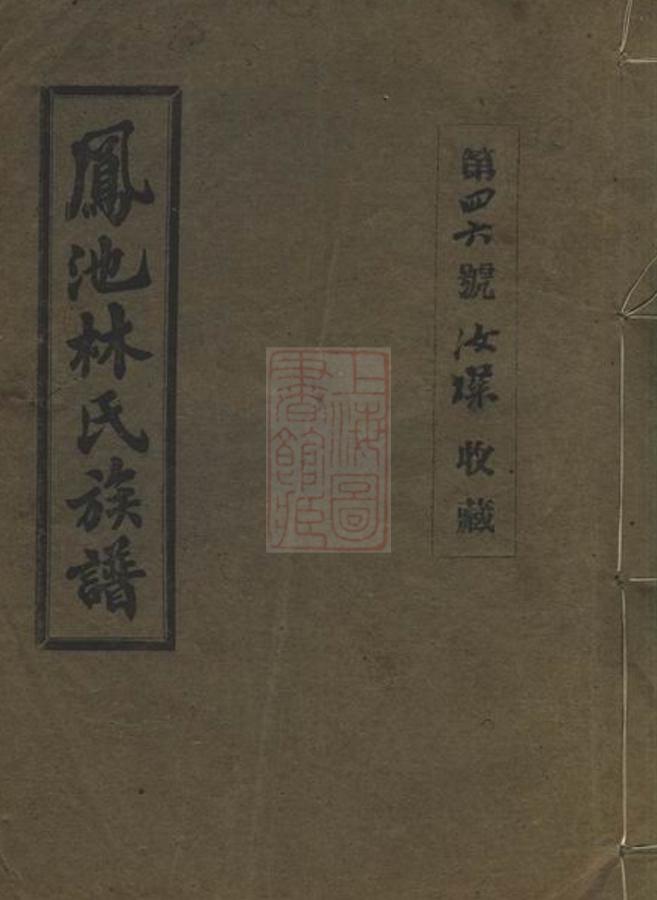 第四六號汝琛收藏
上海圖
書館藏
鳳池林氏族譜